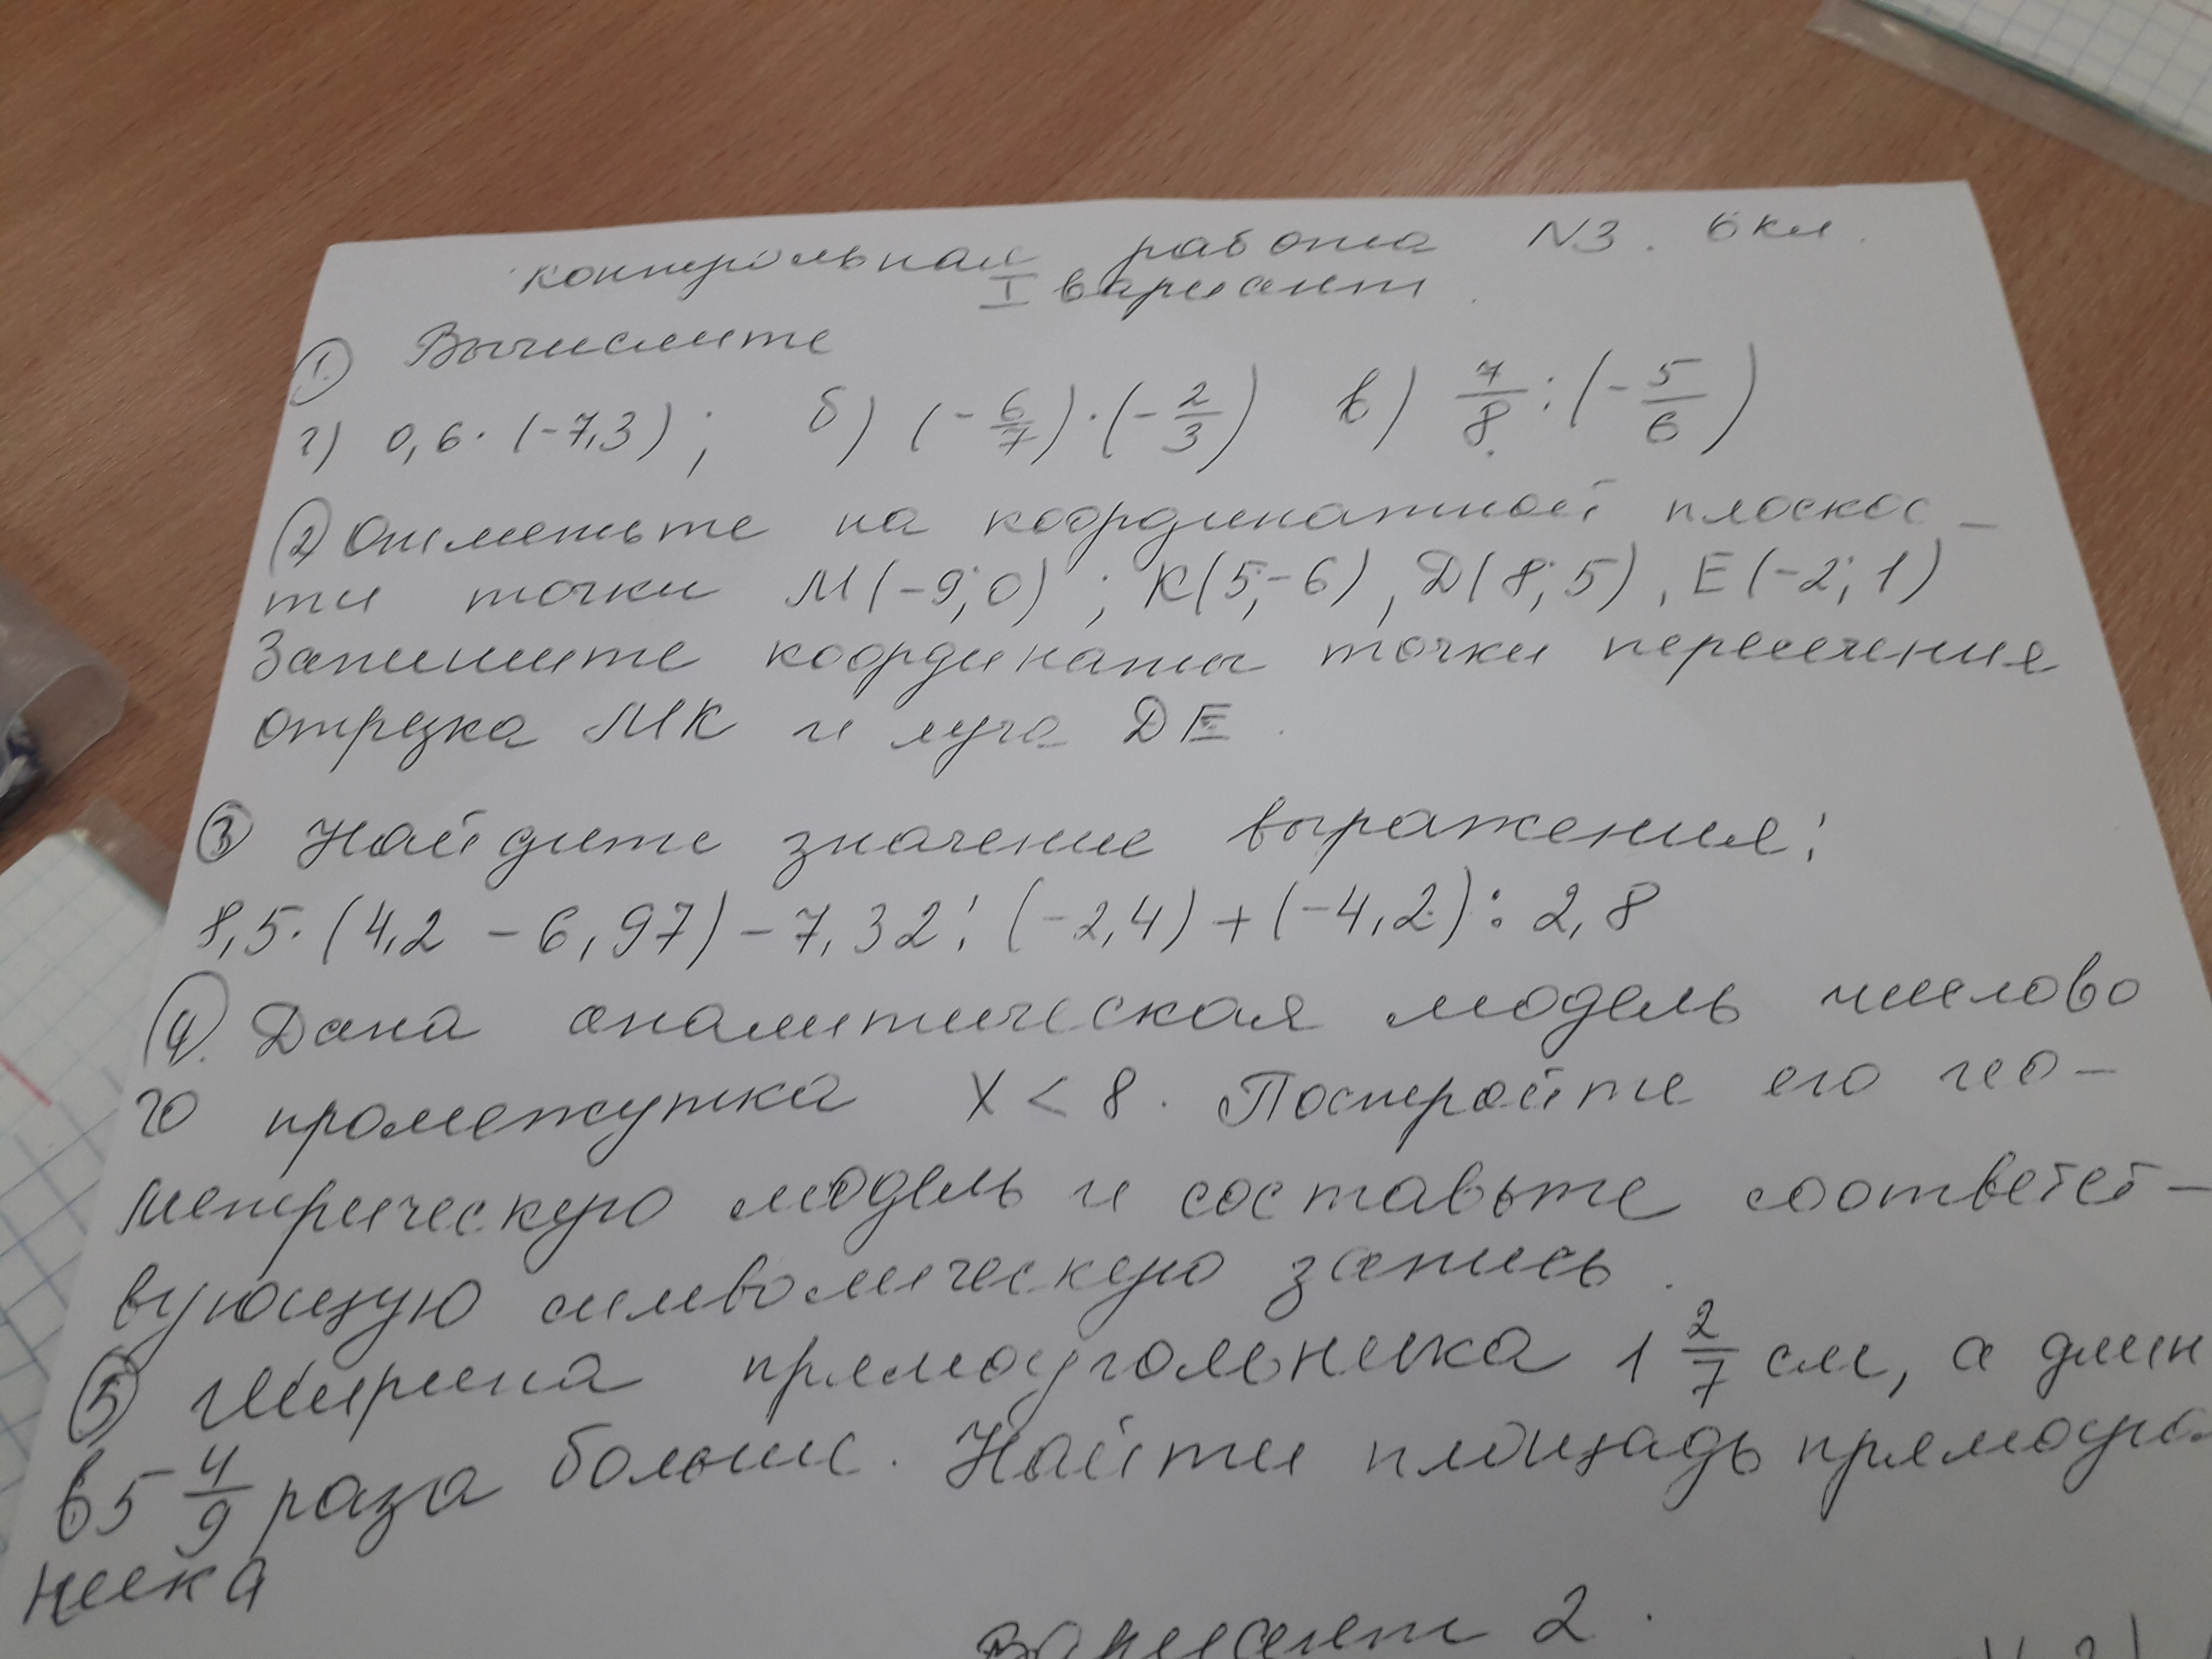 контрольная работа N3. 6 кл.
I вариант.
1. Вычислите
а) 0,6·(-7,3); б) (-6/7)·(-2/3) в) 7/8:(-5/6)
2) Отметьте на координатной плоскос-
ти точки М(-9;0); К(5;-6), Д(8;5), Е(-2;1)
Запишите координаты точки пересечения
отрезка МК и луча DE.
3) Найдите значение выражения:
8,5·(4,2 - 6,97) - 7,32:(-2,4)+(-4,2):2,8
4. Дана аналитическая модель числово
го промежутка X < 8. Постройте его гео-
метрическую модель и составьте соответст-
вующую символическую запись.
5) Ширина прямоугольника 1 2/7 см, а длин
в 5 4/9 раза больше. Найти площадь прямоуго
ника
Вариант 2.